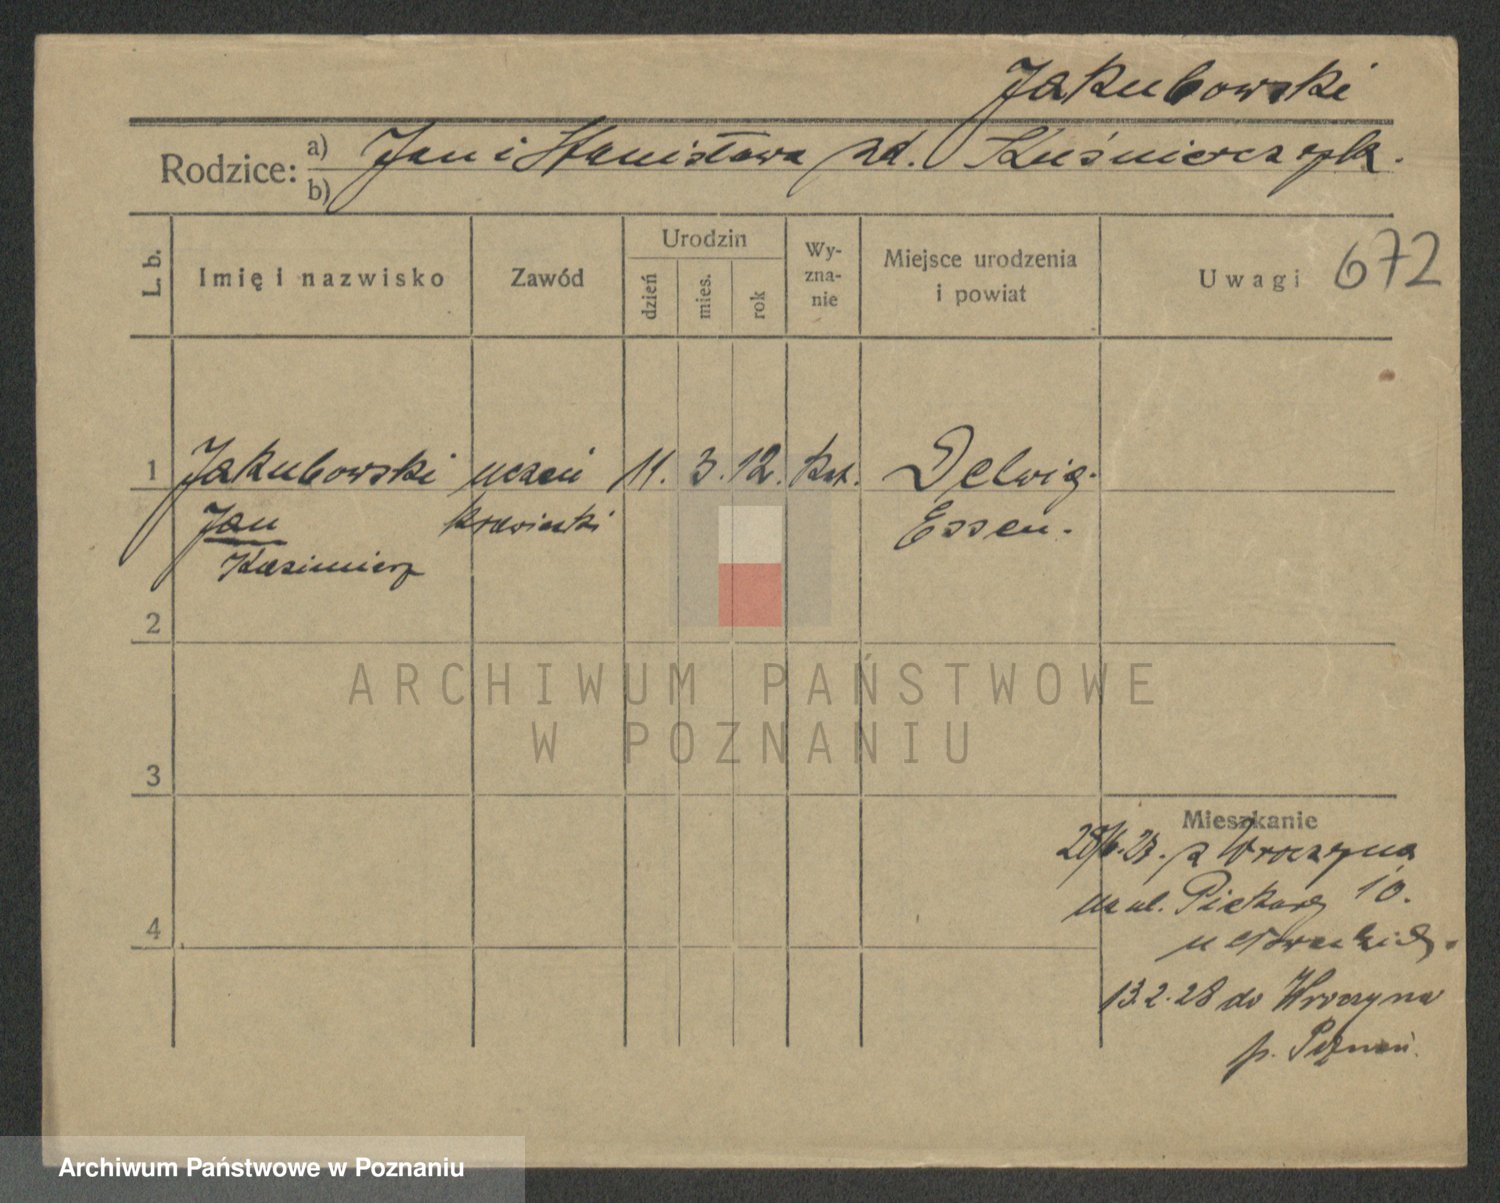 Jakubowski
Rodzice: a) Jan i Stanisława zd. Kuśnierczyk.
b)
L. b. Imię i nazwisko Zawód Urodzin dzień mies. rok Wy-zna-nie Miejsce urodzenia i powiat Uwagi 672
1 Jakubowski uczeń 11. 3. 12. kat. Delwig.
Jan krawiecki Essen.
Kazimierz
2
ARCHIWUM PAŃSTWOWE
W POZNANIU
3
Mieszkanie
28/6.27. z Wroczyna
na ul. Piekary 10.
4
u
13.2.28 do Wroczyna
p. Poznań.
Archiwum Państwowe w Poznaniu